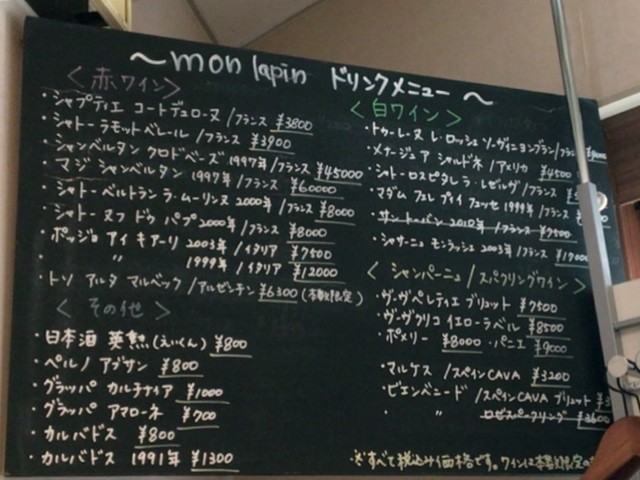 〜mon lapin ドリンクメニュー〜
〈赤ワイン〉
・シャプティエ コートデュローヌ/フランス ¥3800
・シャトーラモットベレール/フランス ¥3900
・シャンベルタン クロドベーズ 1997年/フランス ¥45000
・マジ シャンベルタン 1997年/フランス ¥60000
・シャトーベルトラン ラ・ムーリンヌ 2000年/フランス ¥8000
・シャトーヌフ ドゥ パプ 2000年/フランス ¥8000
・ポッジョ アイ キアーリ 2003年/イタリア ¥7500
・ 〃 1999年/イタリア ¥12000
・トソ アルタ マルベック/アルゼンチン ¥6300(本数限定)
〈その他〉
・日本酒 英勲(えいくん) ¥800
・ペルノ アブサン ¥800
・グラッパ カルチナイア ¥1000
・グラッパ アマローネ ¥700
・カルバドス ¥800
・カルバドス 1991年 ¥1300
〈白ワイン〉
・トゥレーヌ レ・ロッシュ ソーヴィニヨンブラン/フランス
・メナージュア シャルドネ/アメリカ ¥4500
・シャトーロスピタレ ラ・レゼルヴ/フランス
・マダム フェレ プイィ フュッセ 1999年/フランス
・サントーバン 2010年/フランス ¥7500
・シャサーニュ モンラッシェ 2003年/フランス
〈シャンパーニュ/スパクリングワイン〉
・ヴーヴペレティエ ブリュット ¥7500
・ヴーヴクリコ イエローラベル ¥8500
・ポメリー ¥8000 ・パニエ ¥9000
・マルケス/スペインCAVA ¥3200
・ビエンベニード/スペインCAVA ブリュット
・ 〃 ロゼスパークリング ¥3600
※すべて税込み価格です。ワインは本数限定の